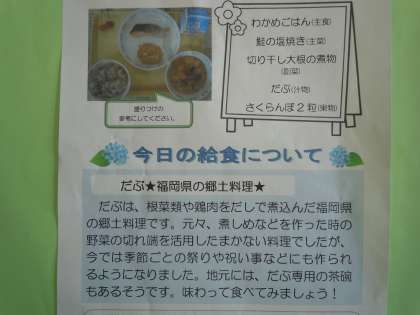 わかめごはん(主食)
鮭の塩焼き(主菜)
切り干し大根の煮物
(副菜)
だぶ(汁物)
さくらんぼ2粒(果物)
盛りつけの
参考にしてください。
今日の給食について
だぶ★福岡県の郷土料理★
だぶは、根菜類や鶏肉をだしで煮込んだ福岡県
の郷土料理です。元々、煮しめなどを作った時の
野菜の切れ端を活用したまかない料理でしたが、
今では季節ごとの祭りや祝い事などにも作られ
るようになりました。地元には、だぶ専用の茶碗
もあるそうです。味わって食べてみましょう!